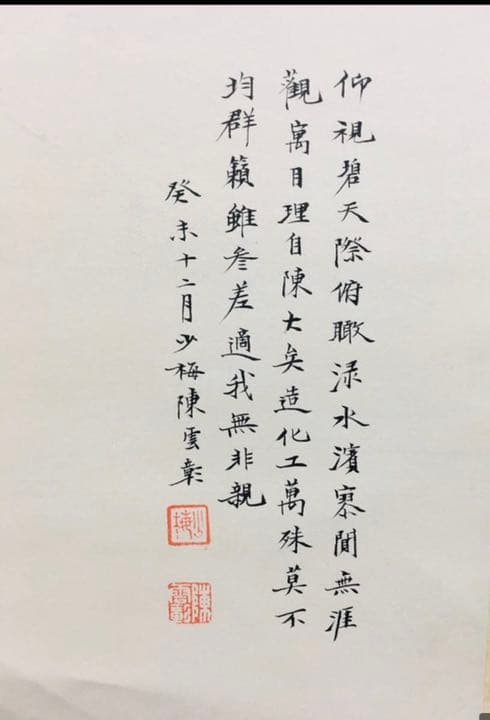 仰視碧天際俯瞰渌水濱寥閒無涯
觀寓目理自陳大矣造化工萬殊莫不
均群籟雖叅差適我無非親
癸未十二月少梅陳雲彰
少梅
陳雲彰